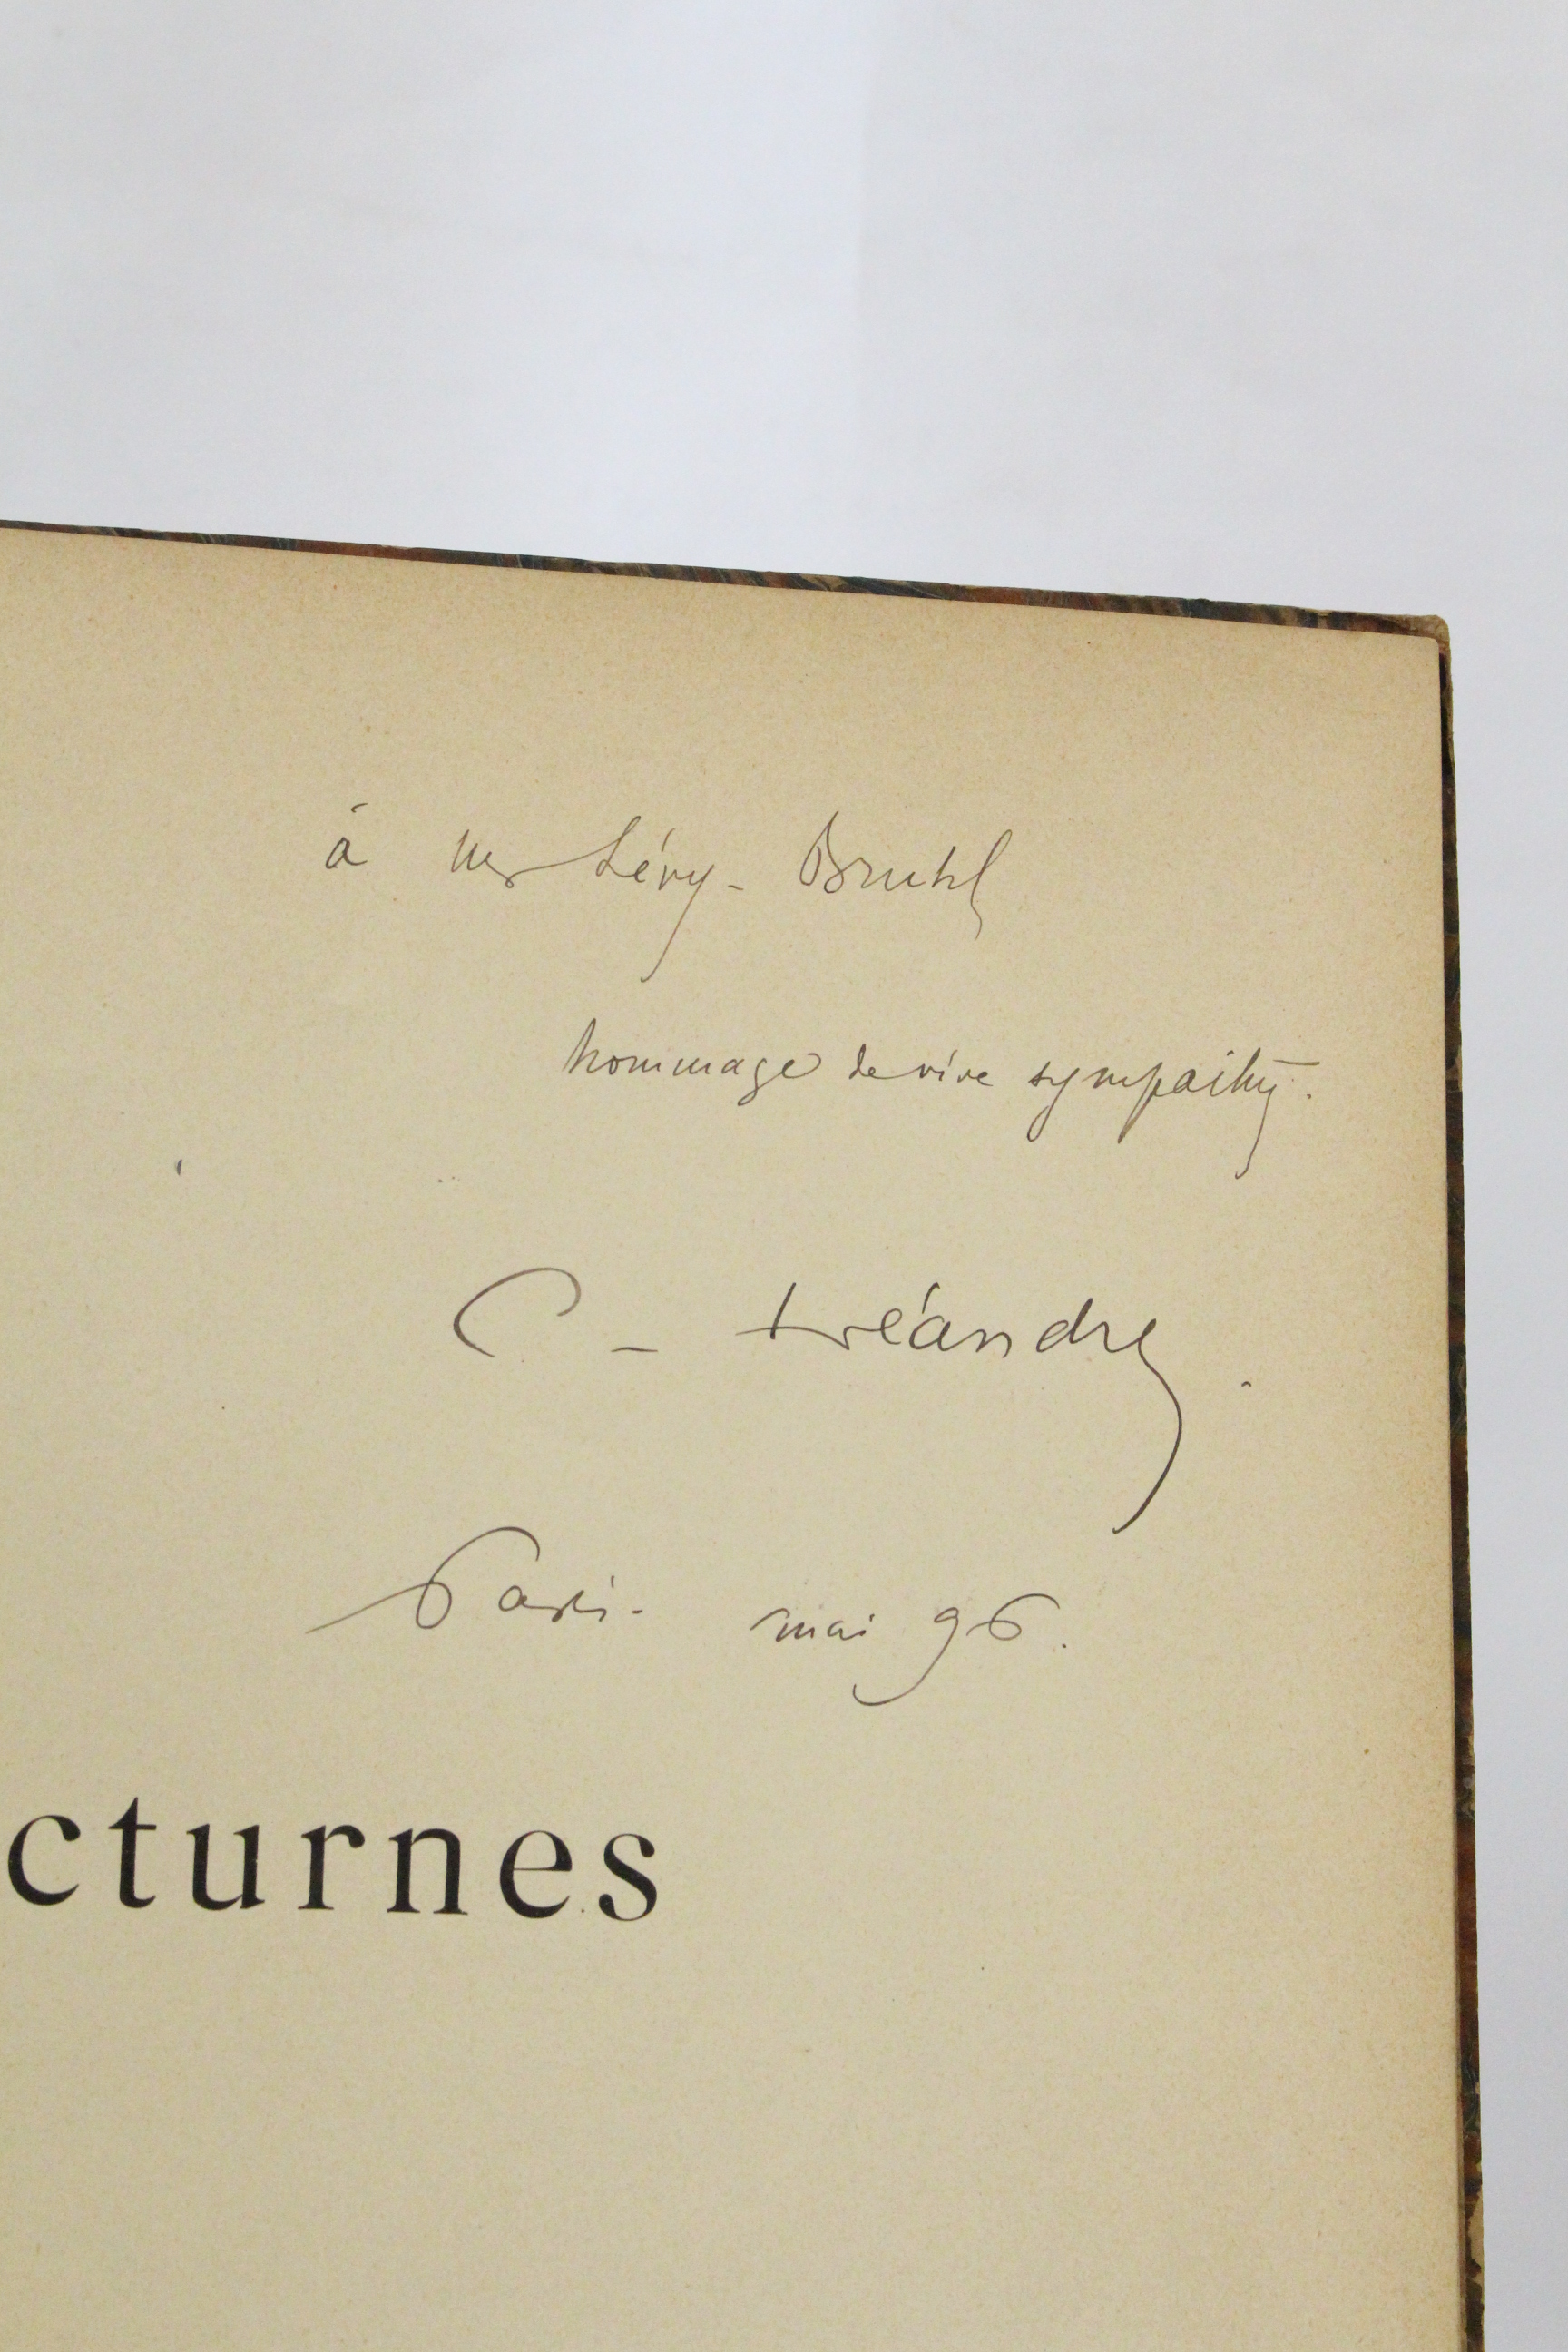 à Mr Lévy-Bruhl
hommage de vive sympathie.
C- Léandre.
Paris- mai 96.
cturnes